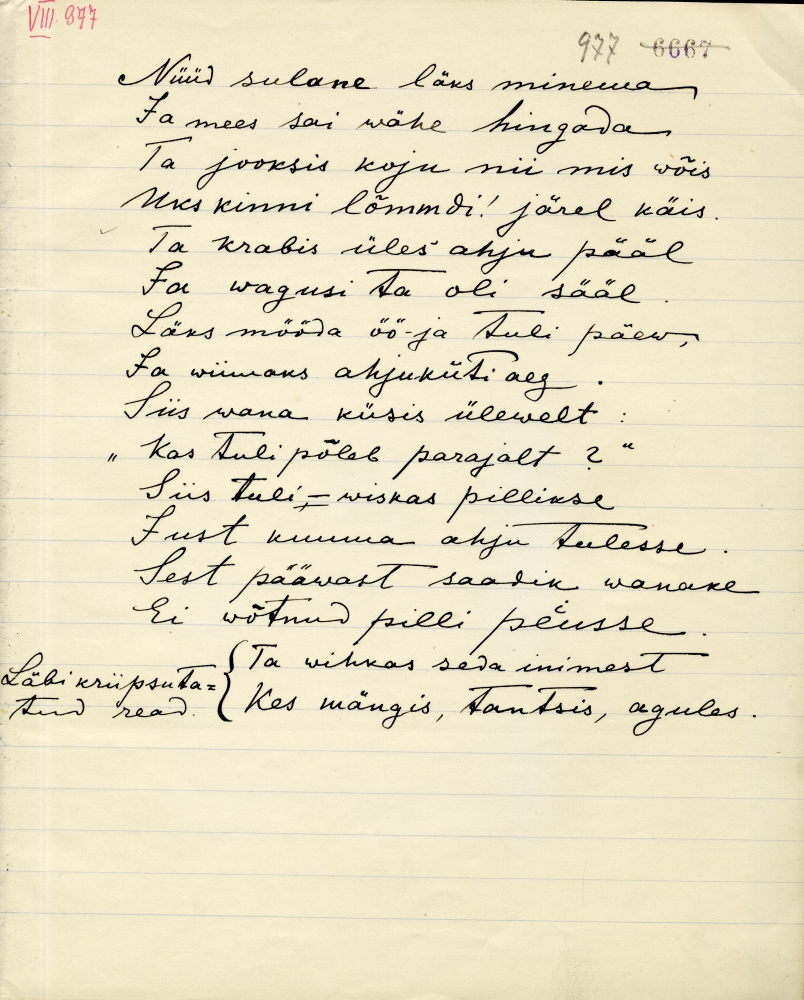 VIII 977
977 6667
Nüüd sulane läks minema,
Ja mees sai wähe hingada
Ta jooksis koju nii mis wõis
Uks kinni lõmmdi! järel käis.
Ta krabis üles ahju pääl
Ja wagusi ta oli sääl.
Läks mööda öö-ja tuli päew,
Ja wiimaks ahjuküti aeg.
Siis wana küsis ülewelt :
„Kas tuli põleb parajalt ?“
Siis tuli, – wiskas pillikse
Just kuuma ahju tulesse.
Sest pääwast saadik wanake
Ei wõtnud pilli pëusse.
Läbikriipsuta= { Ta wihkas seda inimest
tud read. Kes mängis, tantsis, agules.